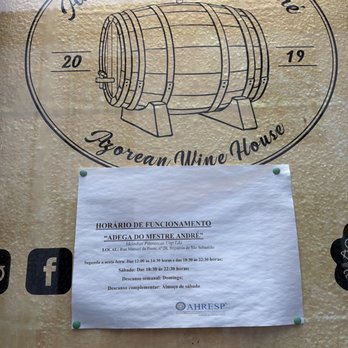 20 19
Azorean Wine House
HORÁRIO DE FUNCIONAMENTO
"ADEGA DO MESTRE ANDRÉ"
Segunda a sexta feira: Das 12:00 às 14:30 horas e das 18:30 às 22:30 horas;
Sábado: Das 18:30 às 22:30 horas;
Descanso semanal: Domingo;
Descanso complementar: Almoço de sábado
AHRESP